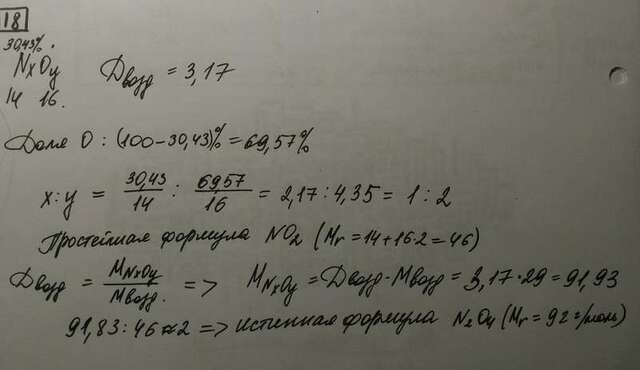 18
30,43%.
NxOy Dвозд = 3,17
14 16.
Доля O : (100-30,43)% = 69,57%
x:y = 30,43/14 : 69,57/16 = 2,17 : 4,35 = 1 : 2
Простейшая формула NO₂ (Mr = 14+16·2 = 46)
Dвозд = MNxOy/Mвозд. => MNxOy = Dвозд·Mвозд = 3,17·29 = 91,93
91,83 : 46 ≈ 2 => истинная формула N₂O₄ (Mr = 92 г/моль)